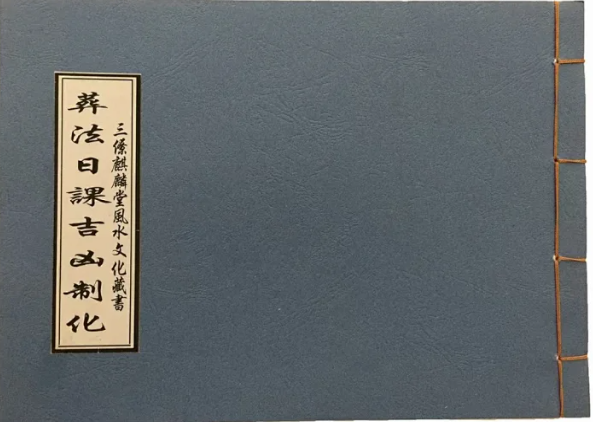 三僚麒麟堂風水文化藏書
葬法日課吉凶制化